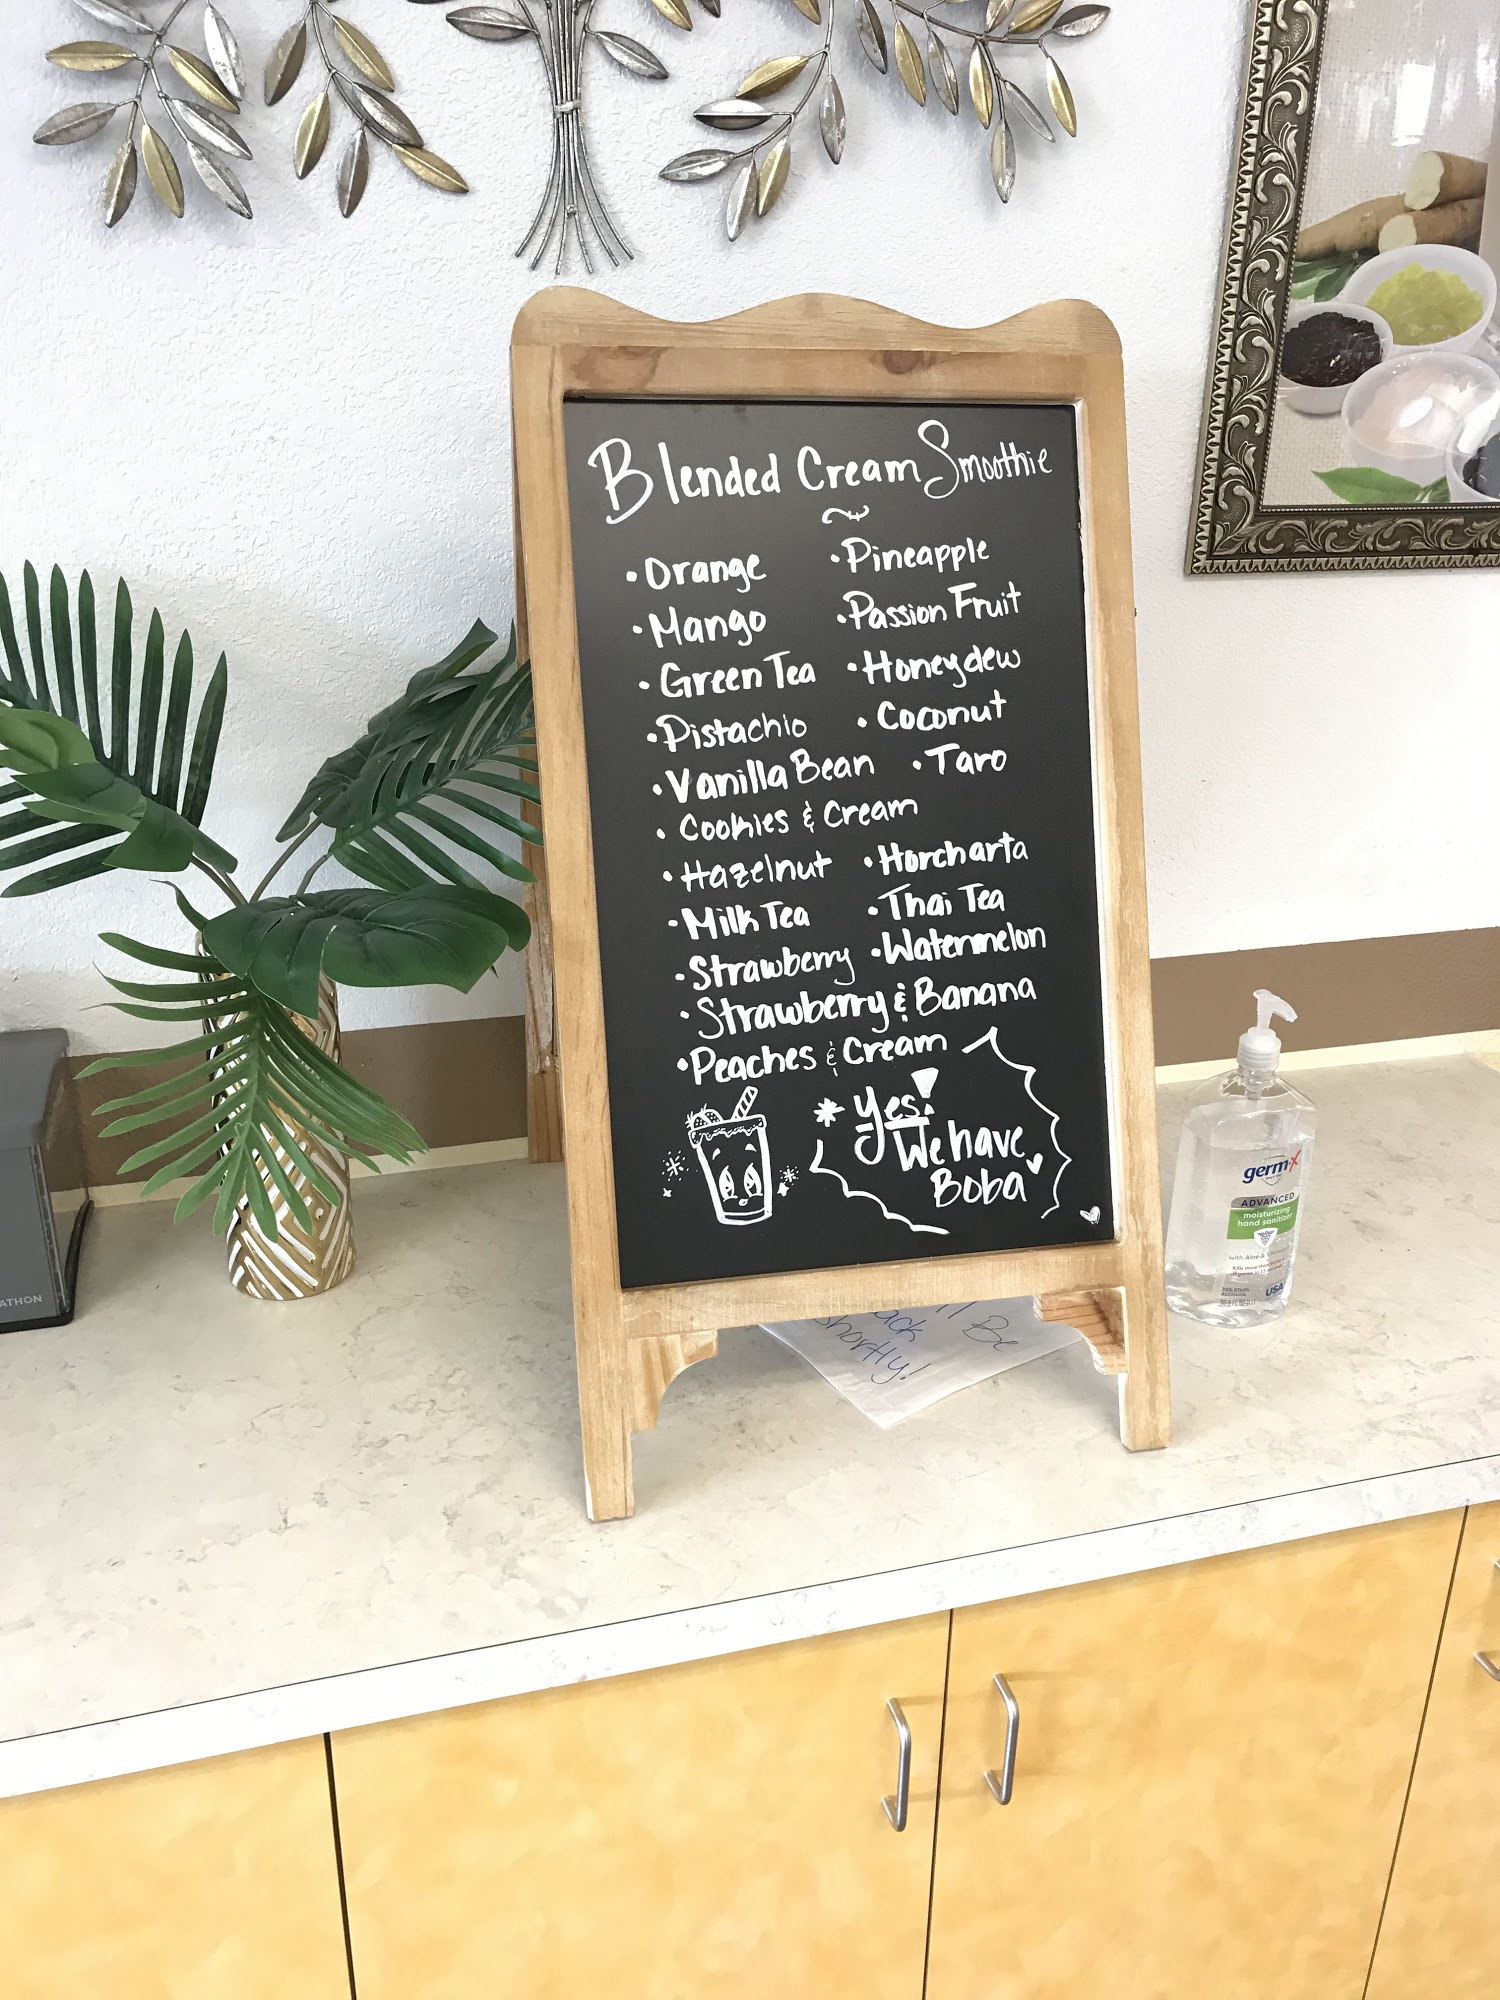 Blended Cream Smoothie
• Orange • Pineapple
• Mango • Passion Fruit
• Green Tea • Honeydew
• Pistachio • Coconut
• Vanilla Bean • Taro
• Cookies & Cream
• Hazelnut • Horcharta
• Milk Tea • Thai Tea
• Strawberry • Watermelon
• Strawberry & Banana
• Peaches & Cream
* Yes!
We have
Boba
ll Be
ack
Shortly!
germ-x
ADVANCED
moisturizing
hand sanitizer
with Aloe &
Kills more than
USA
ATHON